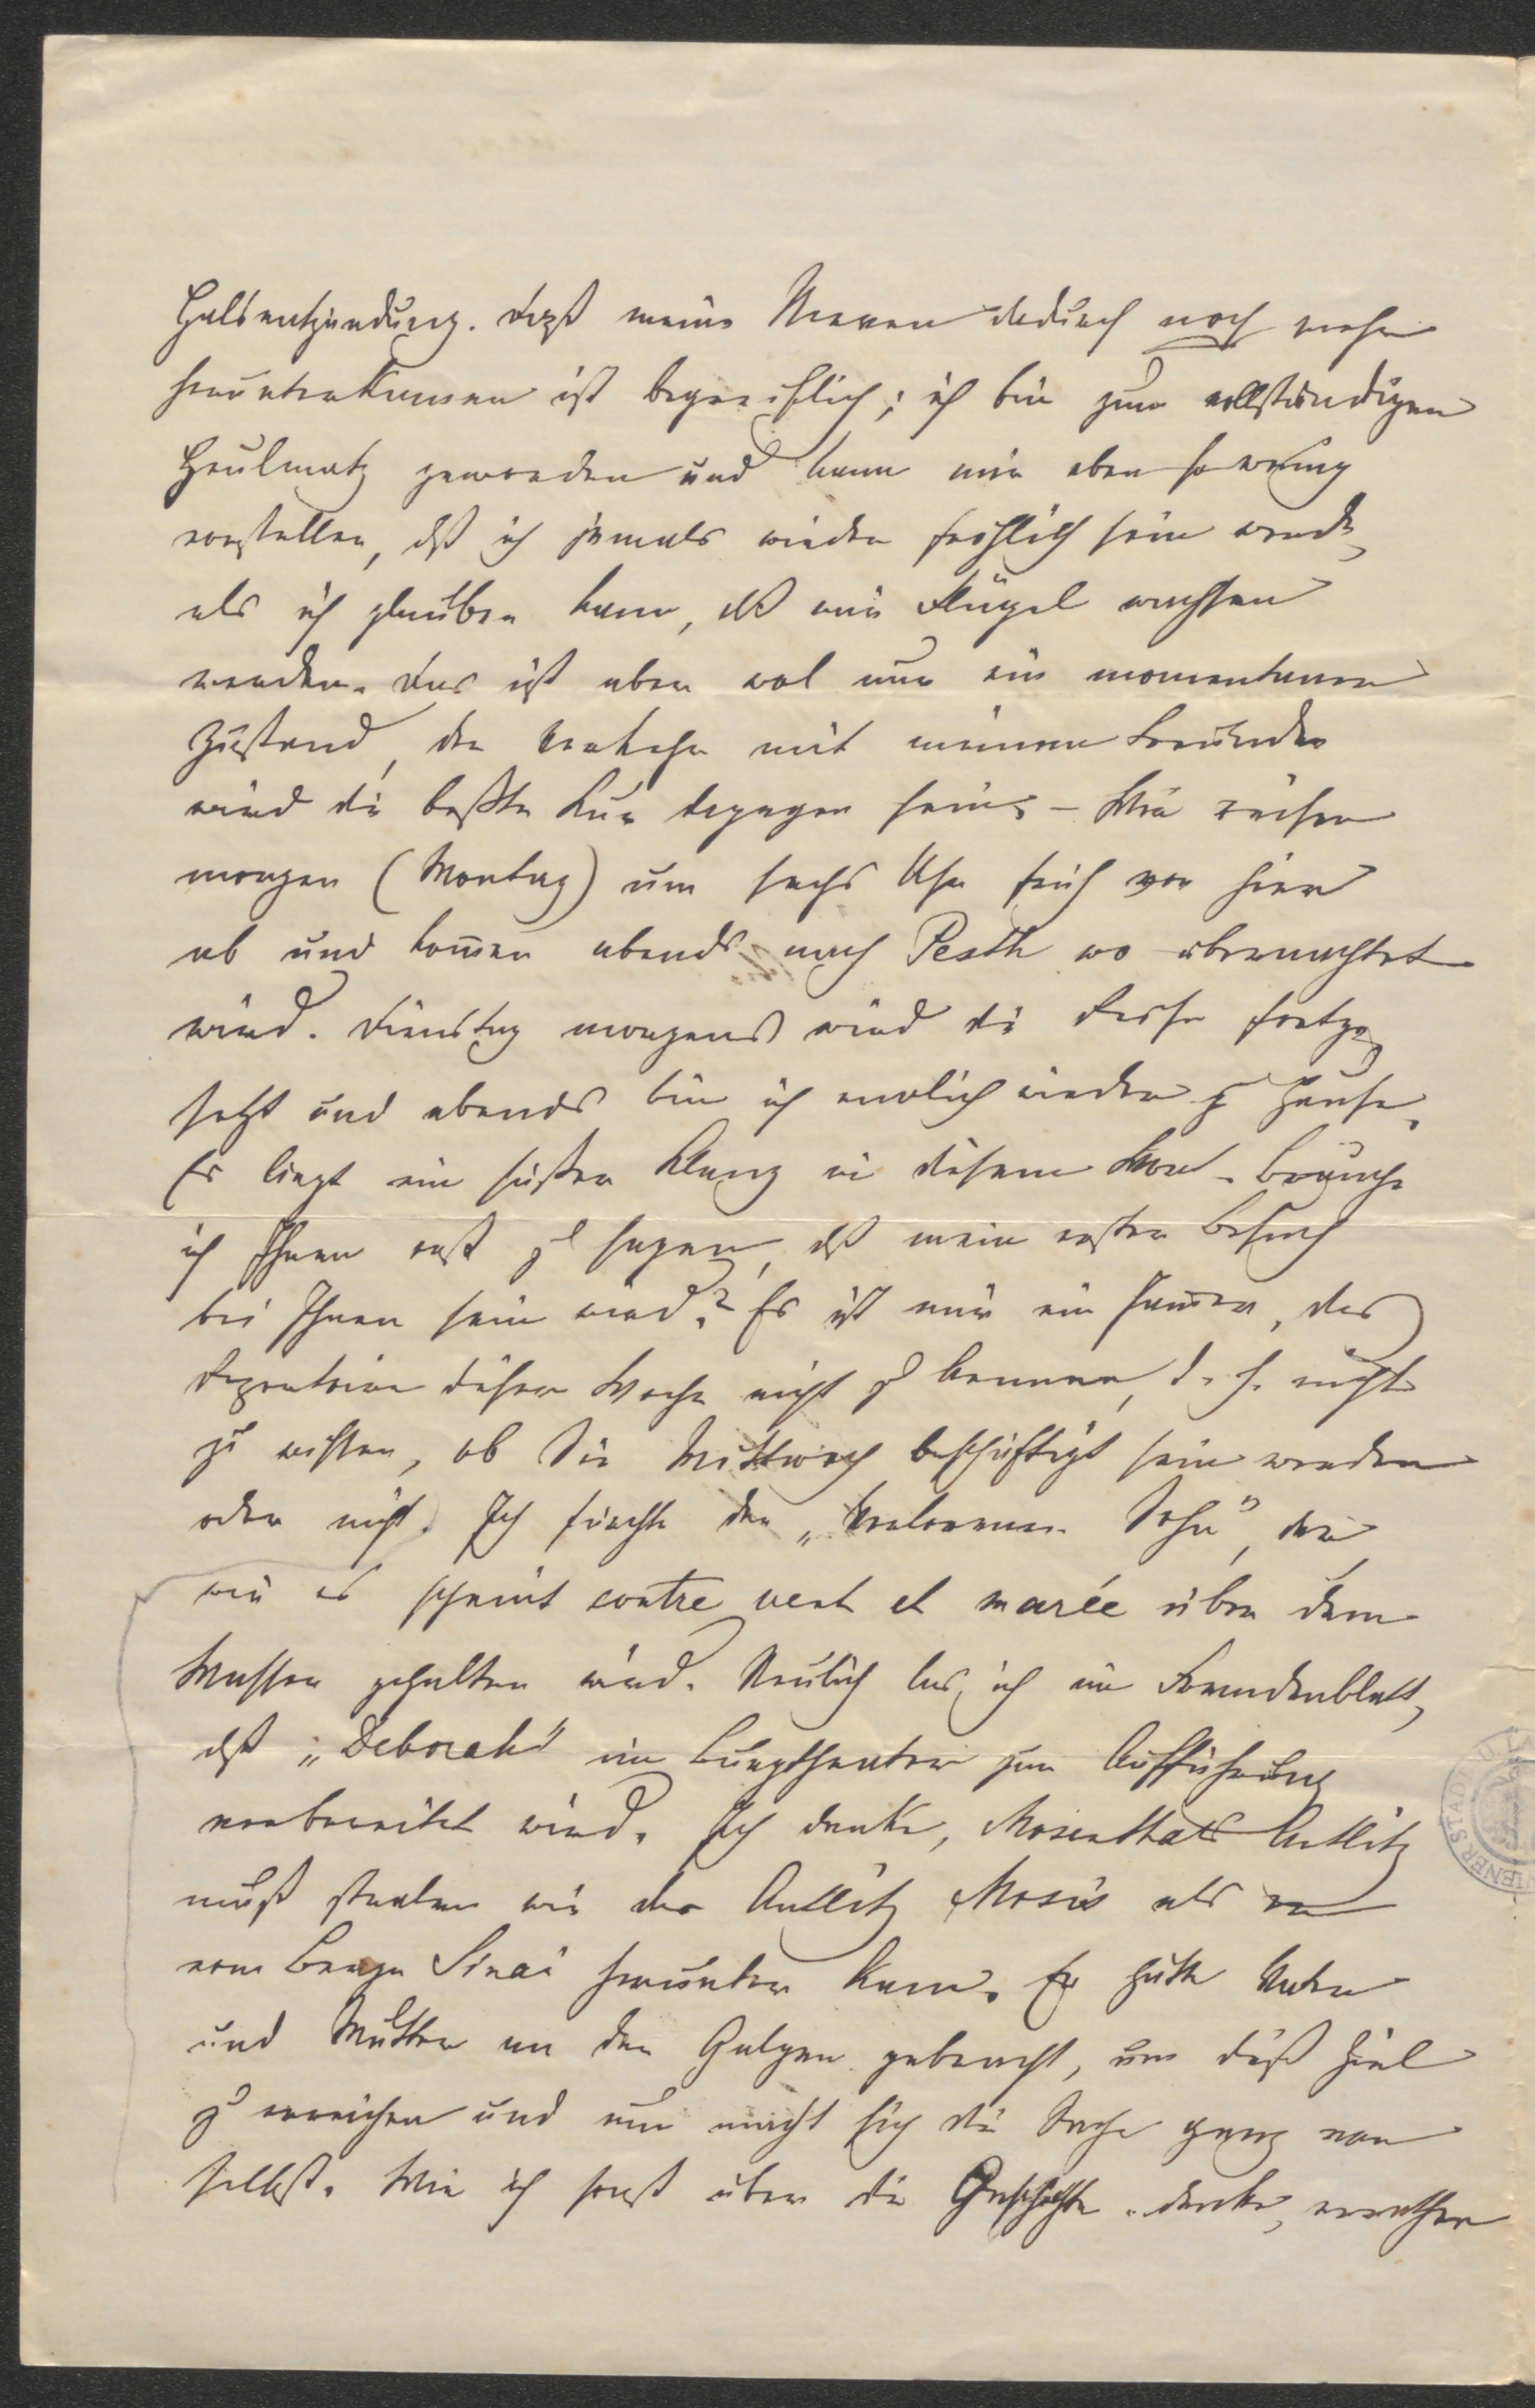 Halsentzündung. Daß meine Nerven dadurch noch mehr
herunterkamen ist begreiflich; ich bin zum vollständigen
Heulmatz geworden und kann mir eben so wenig
vorstellen, dß ich jemals wieder fröhlich sein werde,
als ich glauben kann, dß mir Flügel wachsen
werden. Das ist aber wol nur ein momentaner
Zustand, der Verkehr mit meinen Freunden
wird die beßte Kur dagegen sein. – Wir reisen
morgen (Montag) um sechs Uhr früh von hier
ab und kom̄en abends nach Pesth wo übernachtet
wird. Dienstag morgens wird die Reise fortge
setzt und abends bin ich endlich wieder zu Hause.
Es liegt ein süßer Klang in diesem Wort. Brauche
ich Ihnen erst zu sagen, dß mein erster Besuch
bei Ihnen sein wird? Es ist mir ein Jam̄er, das
Repertoire dieser Woche nicht zu kennen, d. h. nicht
zu wissen, ob Sie Mittwoch beschäftigt sein werden
oder nicht. Ich fürchte den „Verlorenen Sohn", der
wie es scheint contre vent et marée über dem
Wasser gehalten wird. Neulich las ich im Fremdenblatt,
dß „Deborah" im Burgtheater zur Aufführung
vorbereitet wird. Ich denke, Mosenthals Antlitz
muß stralen wie das Antlitz Mosis als er
vom Berge Sinai herunter kam. Er hätte Vater
und Mutter an den Galgen gebracht, um dieß Ziel
zu erreichen und nun macht sich die Sache ganz von
selbst. Wie ich sonst über die Geschichte denke, errathen